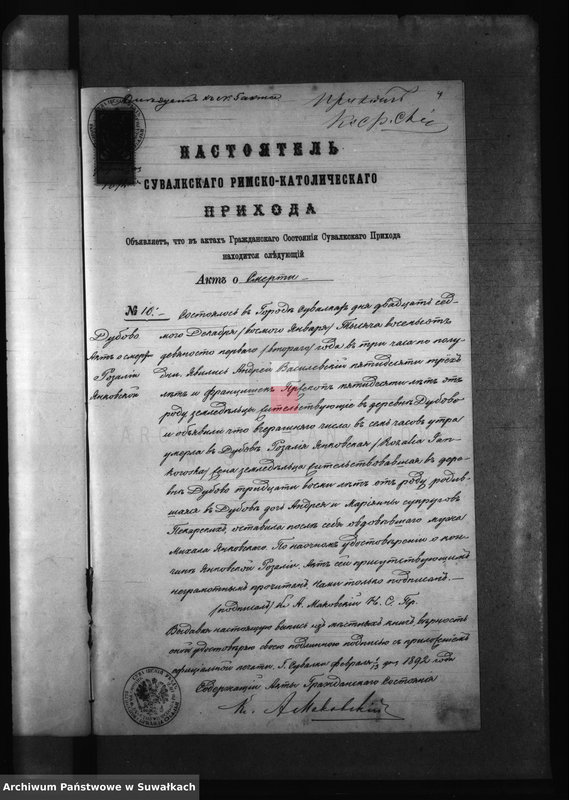 4
НАСТОЯТЕЛЬ
СУВАЛКСКАГО РИМСКО-КАТОЛИЧЕСКАГО
ПРИХОДА
Объявляетъ, что въ актахъ Гражданскаго Состоянія Сувалкскаго Прихода
находится слѣдующій
Актъ о Смерти
№ 10.
Дубово
Актъ о смерти
Розаліи
Янковской
Состоялось въ Городѣ Сувалкахъ дня двадцать сед-
мого Декабря /восмого Января/ Тысяча восемьсотъ
девяносто перваго /втораго/ года въ три часа по полу-
дни. Явились Андрей Василевскій пятидесяти трехъ
лѣтъ и Францишекъ пятидесяти лѣтъ отъ
роду земледѣльцы жительствующіе въ деревнѣ Дубово
и объявили что вчерашняго числа въ семь часовъ утра
умерла въ Дубовѣ Розалія Янковская /Rozalia Jan-
kowska/ жена земледѣльца жительствовавшая въ дерев-
нѣ Дубово тридцати восьми лѣтъ отъ роду родив-
шаяся въ Дубовѣ дочь Андрея и Маріянны супруговъ
Пекарскихъ, оставила послѣ себя овдовѣвшаго мужа
Михала Янковскаго. По наочномъ удостовѣреніи о кон-
чинѣ Янковской Розаліи. Актъ сей присутствующимъ
неграмотнымъ прочитанъ, Нами только подписанъ.
/подписалъ/ Кс. А. Маковскій Н. С. Пр.
Выдавая настоящую выпись изъ мѣстныхъ книгъ вѣрность
оной удостовѣряю своею подлинною подписью съ приложеніемъ
оффиціальной печати. Г. Сувалки февраля 1/13 дня 1892 года
Содержащій Акты Гражданскаго Состоянія
К. А Маковскій
Archiwum Państwowe w Suwałkach